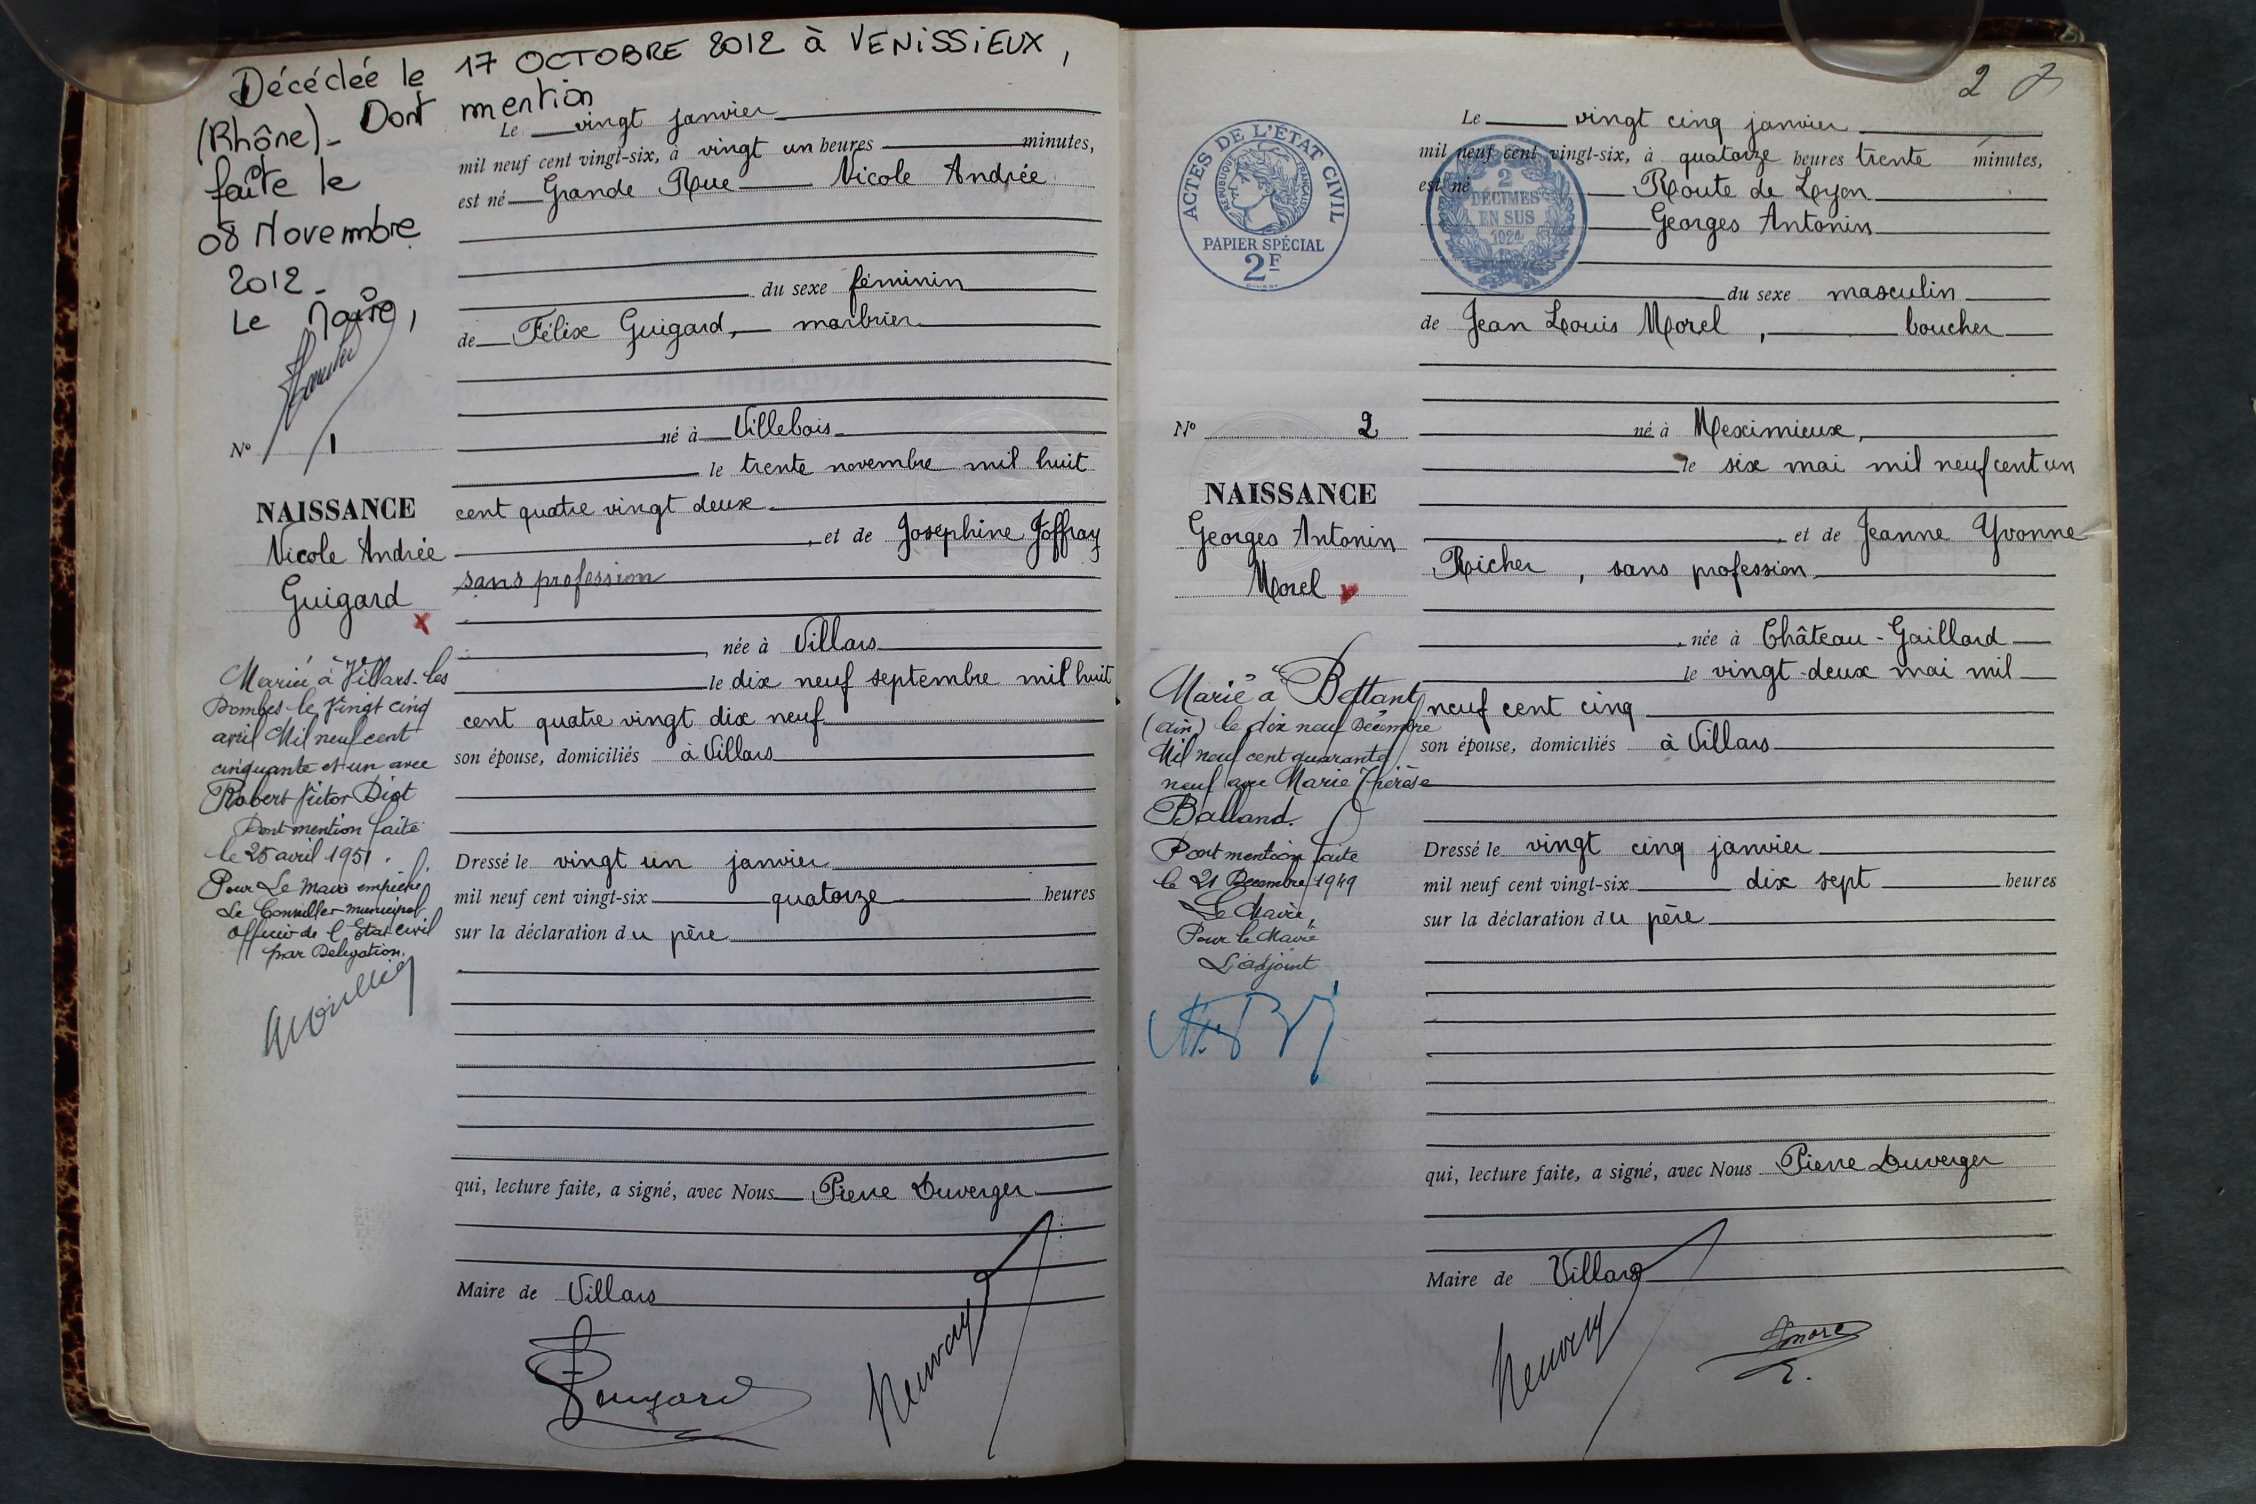 Décédée le 17 OCTOBRE 2012 à VENISSIEUX,
(Rhône)_ Dont mention
faite le
08 Novembre
2012_
Le Maire,
N° 1
NAISSANCE
Nicole Andrée
Guigard
Marié à Villars-les
Dombes le Vingt cinq
avril Mil neuf cent
cinquante et un avec
Robert Victor Diot
Dont mention faite
le 25 avril 1951.
Pour Le Maire empêché,
Le Conseiller municipal
officier de l'Etat civil
par Delegation.
Le vingt janvier
mil neuf cent vingt-six, à vingt un heures minutes,
est né Grande Rue Nicole Andrée
du sexe féminin
de Félix Guigard, marbrier
né à Villebois
le trente novembre mil huit
cent quatre vingt deux
, et de Joséphine Joffray
sans profession
, née à Villars
le dix neuf septembre mil huit
cent quatre vingt dix neuf
son épouse, domiciliés à Villars
Dressé le vingt un janvier
mil neuf cent vingt-six quatorze heures
sur la déclaration du père
qui, lecture faite, a signé, avec Nous Pierre Duverger
Maire de Villars
2
ACTES DE L'ÉTAT CIVIL
RÉPUBLIQUE FRANÇAISE
PAPIER SPÉCIAL
2F
2
DÉCIMES
EN SUS
1924
N° 2
NAISSANCE
Georges Antonin
Morel
Marié à Bettant
(Ain) le dix neuf Décembre
Mil neuf cent quarante
neuf avec Marie Thérèse
Balland.
Dont mention faite
le 21 Décembre 1949
Le Maire,
Pour le Maire
L'adjoint
Le vingt cinq janvier
mil neuf cent vingt-six, à quatorze heures trente minutes,
est né Route de Lyon
Georges Antonin
du sexe masculin
de Jean Louis Morel, boucher
né à Meximieux,
le six mai mil neuf cent un
, et de Jeanne Yvonne
Richer, sans profession
, née à Château-Gaillard
le vingt-deux mai mil
neuf cent cinq
son épouse, domiciliés à Villars
Dressé le vingt cinq janvier
mil neuf cent vingt-six dix sept heures
sur la déclaration du père
qui, lecture faite, a signé, avec Nous Pierre Duverger
Maire de Villars